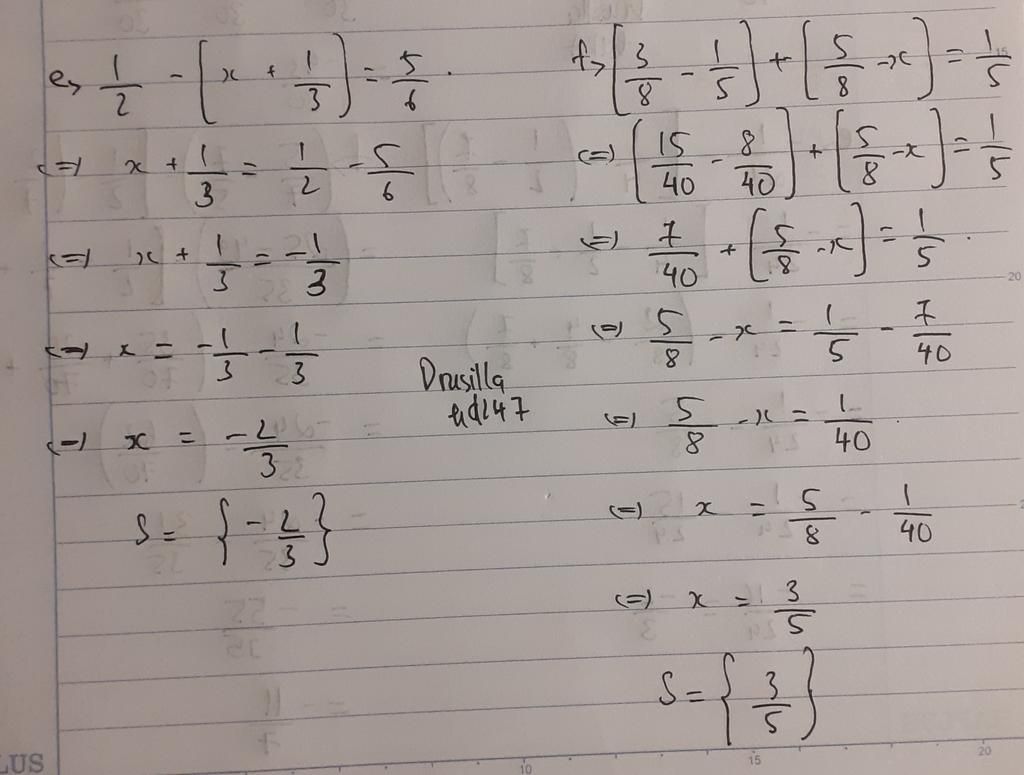 e> 1/2 - [x + 1/3] = 5/6.
<=> x + 1/3 = 1/2 - 5/6
<=> x + 1/3 = -1/3
<=> x = -1/3 - 1/3
<=> x = -2/3
S = {-2/3}
Drusilla
f> [3/8 - 1/5] + [5/8 - x] = 1/5
<=> [15/40 - 8/40] + [5/8 - x] = 1/5
<=> 7/40 + [5/8 - x] = 1/5.
<=> 5/8 - x = 1/5 - 7/40
<=> 5/8 - x = 1/40.
<=> x = 5/8 - 1/40
<=> x = 3/5
S = {3/5}
LUS
10
15
20
20